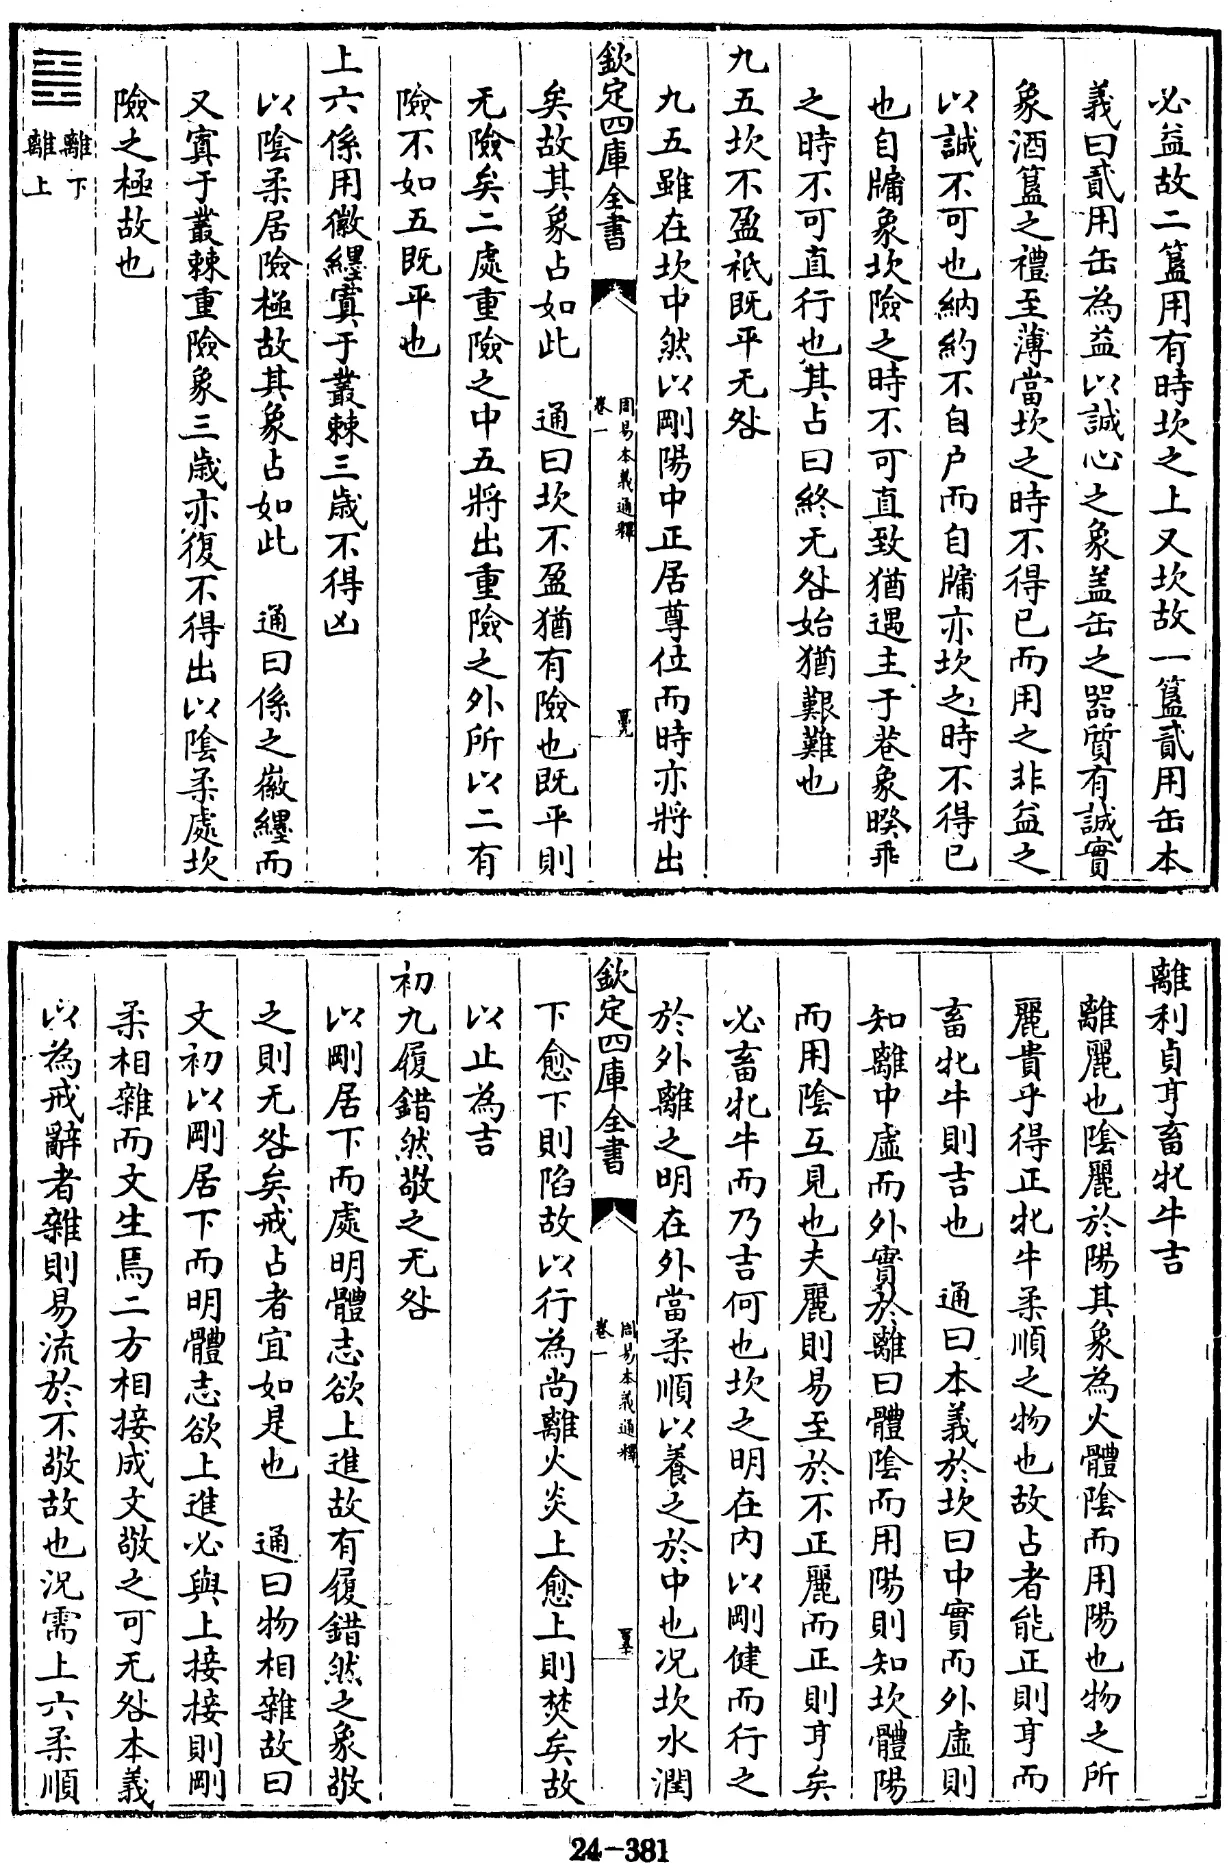 必益故二簋用有時坎之上又坎故一簋貳用缶本
義曰貳用缶為益以誠心之象盖缶之器質有誠實
象酒簋之禮至薄當坎之時不得已而用之非益之
以誠不可也納約不自户而自牖亦坎之時不得已
也自牖象坎險之時不可直致猶遇主于巷象暌乖
之時不可直行也其占曰終无咎始猶艱難也
九五坎不盈祗既平无咎
九五雖在坎中然以剛陽中正居尊位而時亦將出
欽定四庫全書
周易本義通釋
卷一
矣故其象占如此　通曰坎不盈猶有險也既平則
无險矣二處重險之中五將出重險之外所以二有
險不如五既平也
上六係用徽纆寘于叢棘三歲不得凶
以陰柔居險極故其象占如此　通曰係之徽纆而
又寘于叢棘重險象三歲亦復不得出以陰柔處坎
險之極故也
離下
離上
離利貞亨畜牝牛吉
離麗也陰麗於陽其象為火體陰而用陽也物之所
麗貴乎得正牝牛柔順之物也故占者能正則亨而
畜牝牛則吉也　通曰本義於坎曰中實而外虛則
知離中虛而外實於離曰體陰而用陽則知坎體陽
而用陰互見也夫麗則易至於不正麗而正則亨矣
必畜牝牛而乃吉何也坎之明在内以剛健而行之
於外離之明在外當柔順以養之於中也况坎水潤
欽定四庫全書
周易本義通釋
卷一
下愈下則陷故以行為尚離火炎上愈上則焚矣故
以止為吉
初九履錯然敬之无咎
以剛居下而處明體志欲上進故有履錯然之象敬
之則无咎矣戒占者宜如是也　通曰物相雜故曰
文初以剛居下而明體志欲上進必與上接接則剛
柔相雜而文生焉二方相接成文敬之可无咎本義
以為戒辭者雜則易流於不敬故也況需上六柔順
24-381